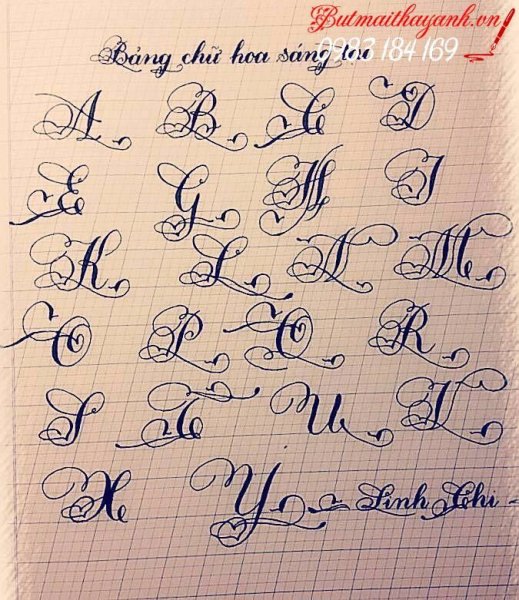 Butmaithayanh.vn
0983 184 169
Bảng chữ hoa sáng tạo
A B C D
E G H I
K L N M
O P Q R
S T U V
X Y Linh Chi -